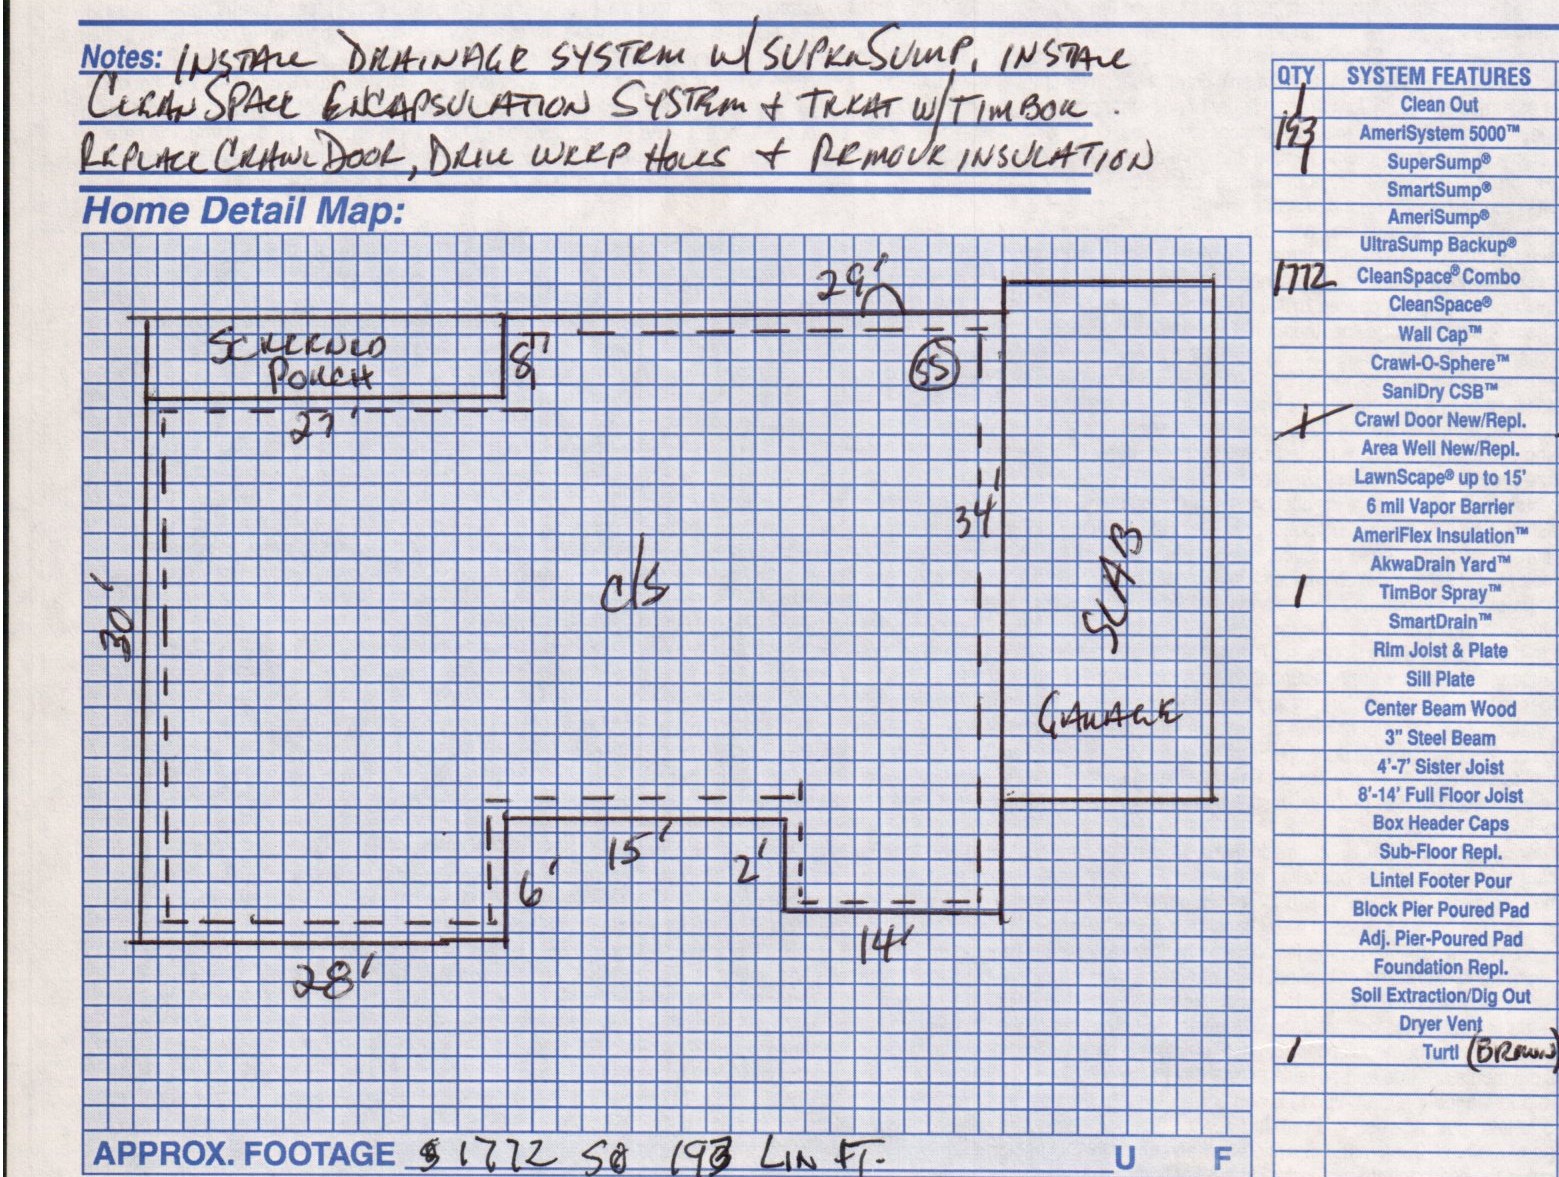 Notes: INSTALL DRAINAGE SYSTEM W/SUPERSUMP, INSTALL
CLEANSPACE ENCAPSULATION SYSTEM + TREAT W/TIMBOR.
REPLACE CRAWL DOOR, DRILL WEEP HOLES + REMOVE INSULATION
Home Detail Map:
29'
SCREENED
PORCH
8'
SS
27'
34'
SLAB
30'
C/S
GARAGE
15'
2'
6'
14'
28'
APPROX. FOOTAGE 1772 SQ 193 LIN FT. U F
QTY SYSTEM FEATURES
1 Clean Out
193 AmeriSystem 5000™
1 SuperSump®
SmartSump®
AmeriSump®
UltraSump Backup®
1772 CleanSpace® Combo
CleanSpace®
Wall Cap™
Crawl-O-Sphere™
SaniDry CSB™
1 Crawl Door New/Repl.
Area Well New/Repl.
LawnScape® up to 15'
6 mil Vapor Barrier
AmeriFlex Insulation™
AkwaDrain Yard™
1 TimBor Spray™
SmartDrain™
Rim Joist & Plate
Sill Plate
Center Beam Wood
3" Steel Beam
4'-7' Sister Joist
8'-14' Full Floor Joist
Box Header Caps
Sub-Floor Repl.
Lintel Footer Pour
Block Pier Poured Pad
Adj. Pier-Poured Pad
Foundation Repl.
Soil Extraction/Dig Out
Dryer Vent
1 Turtl (BROWN)